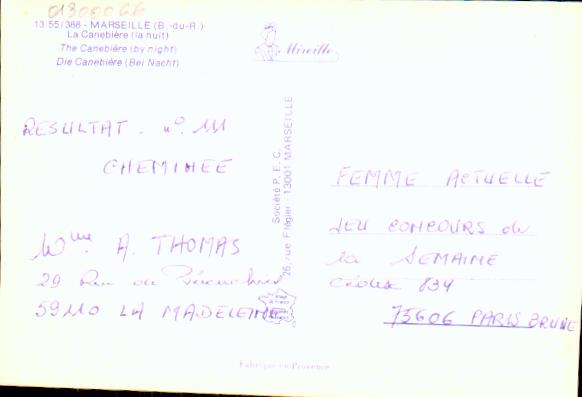 01300066
13.55/388 - MARSEILLE (B.-du-R.)
La Canebière (la nuit)
The Canebière (by night)
Die Canebière (Bei Nacht)
Mireille
RESULTAT. n° 111
CHEMINEE
Mme A. THOMAS
29 Rue du
59110 LA MADELEINE
Société P.E.C.
26, rue Flégier - 13001 MARSEILLE
FEMME ACTUELLE
JEU CONCOURS de
la SEMAINE
CEDEX 834
75606 PARIS BRUNE
Fabriqué en Provence